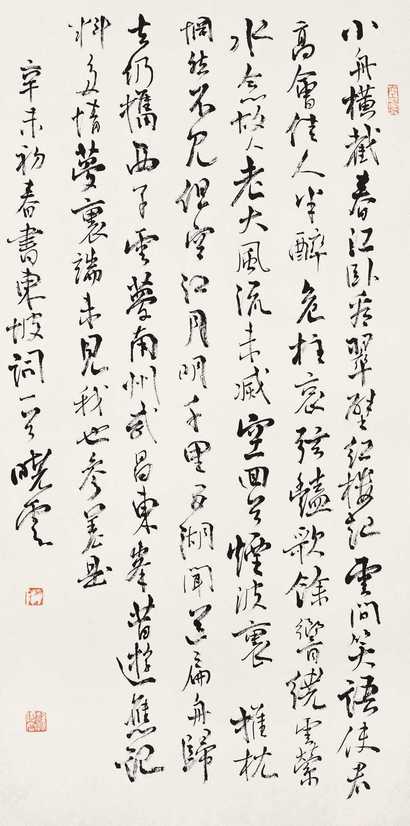 小舟橫截春江臥看翠壁紅樓起雲間笑語使君
高會佳人半醉危柱哀弦豔歌餘響繞雲縈
水念故人老大風流未減空回首煙波裏 推枕
惘然不見但空江月明千里五湖聞道扁舟歸
去仍攜西子雲夢南州武昌東岸昔遊應記
料多情夢裏端來見我也參差是
辛未初春書東坡詞一首 曉雲